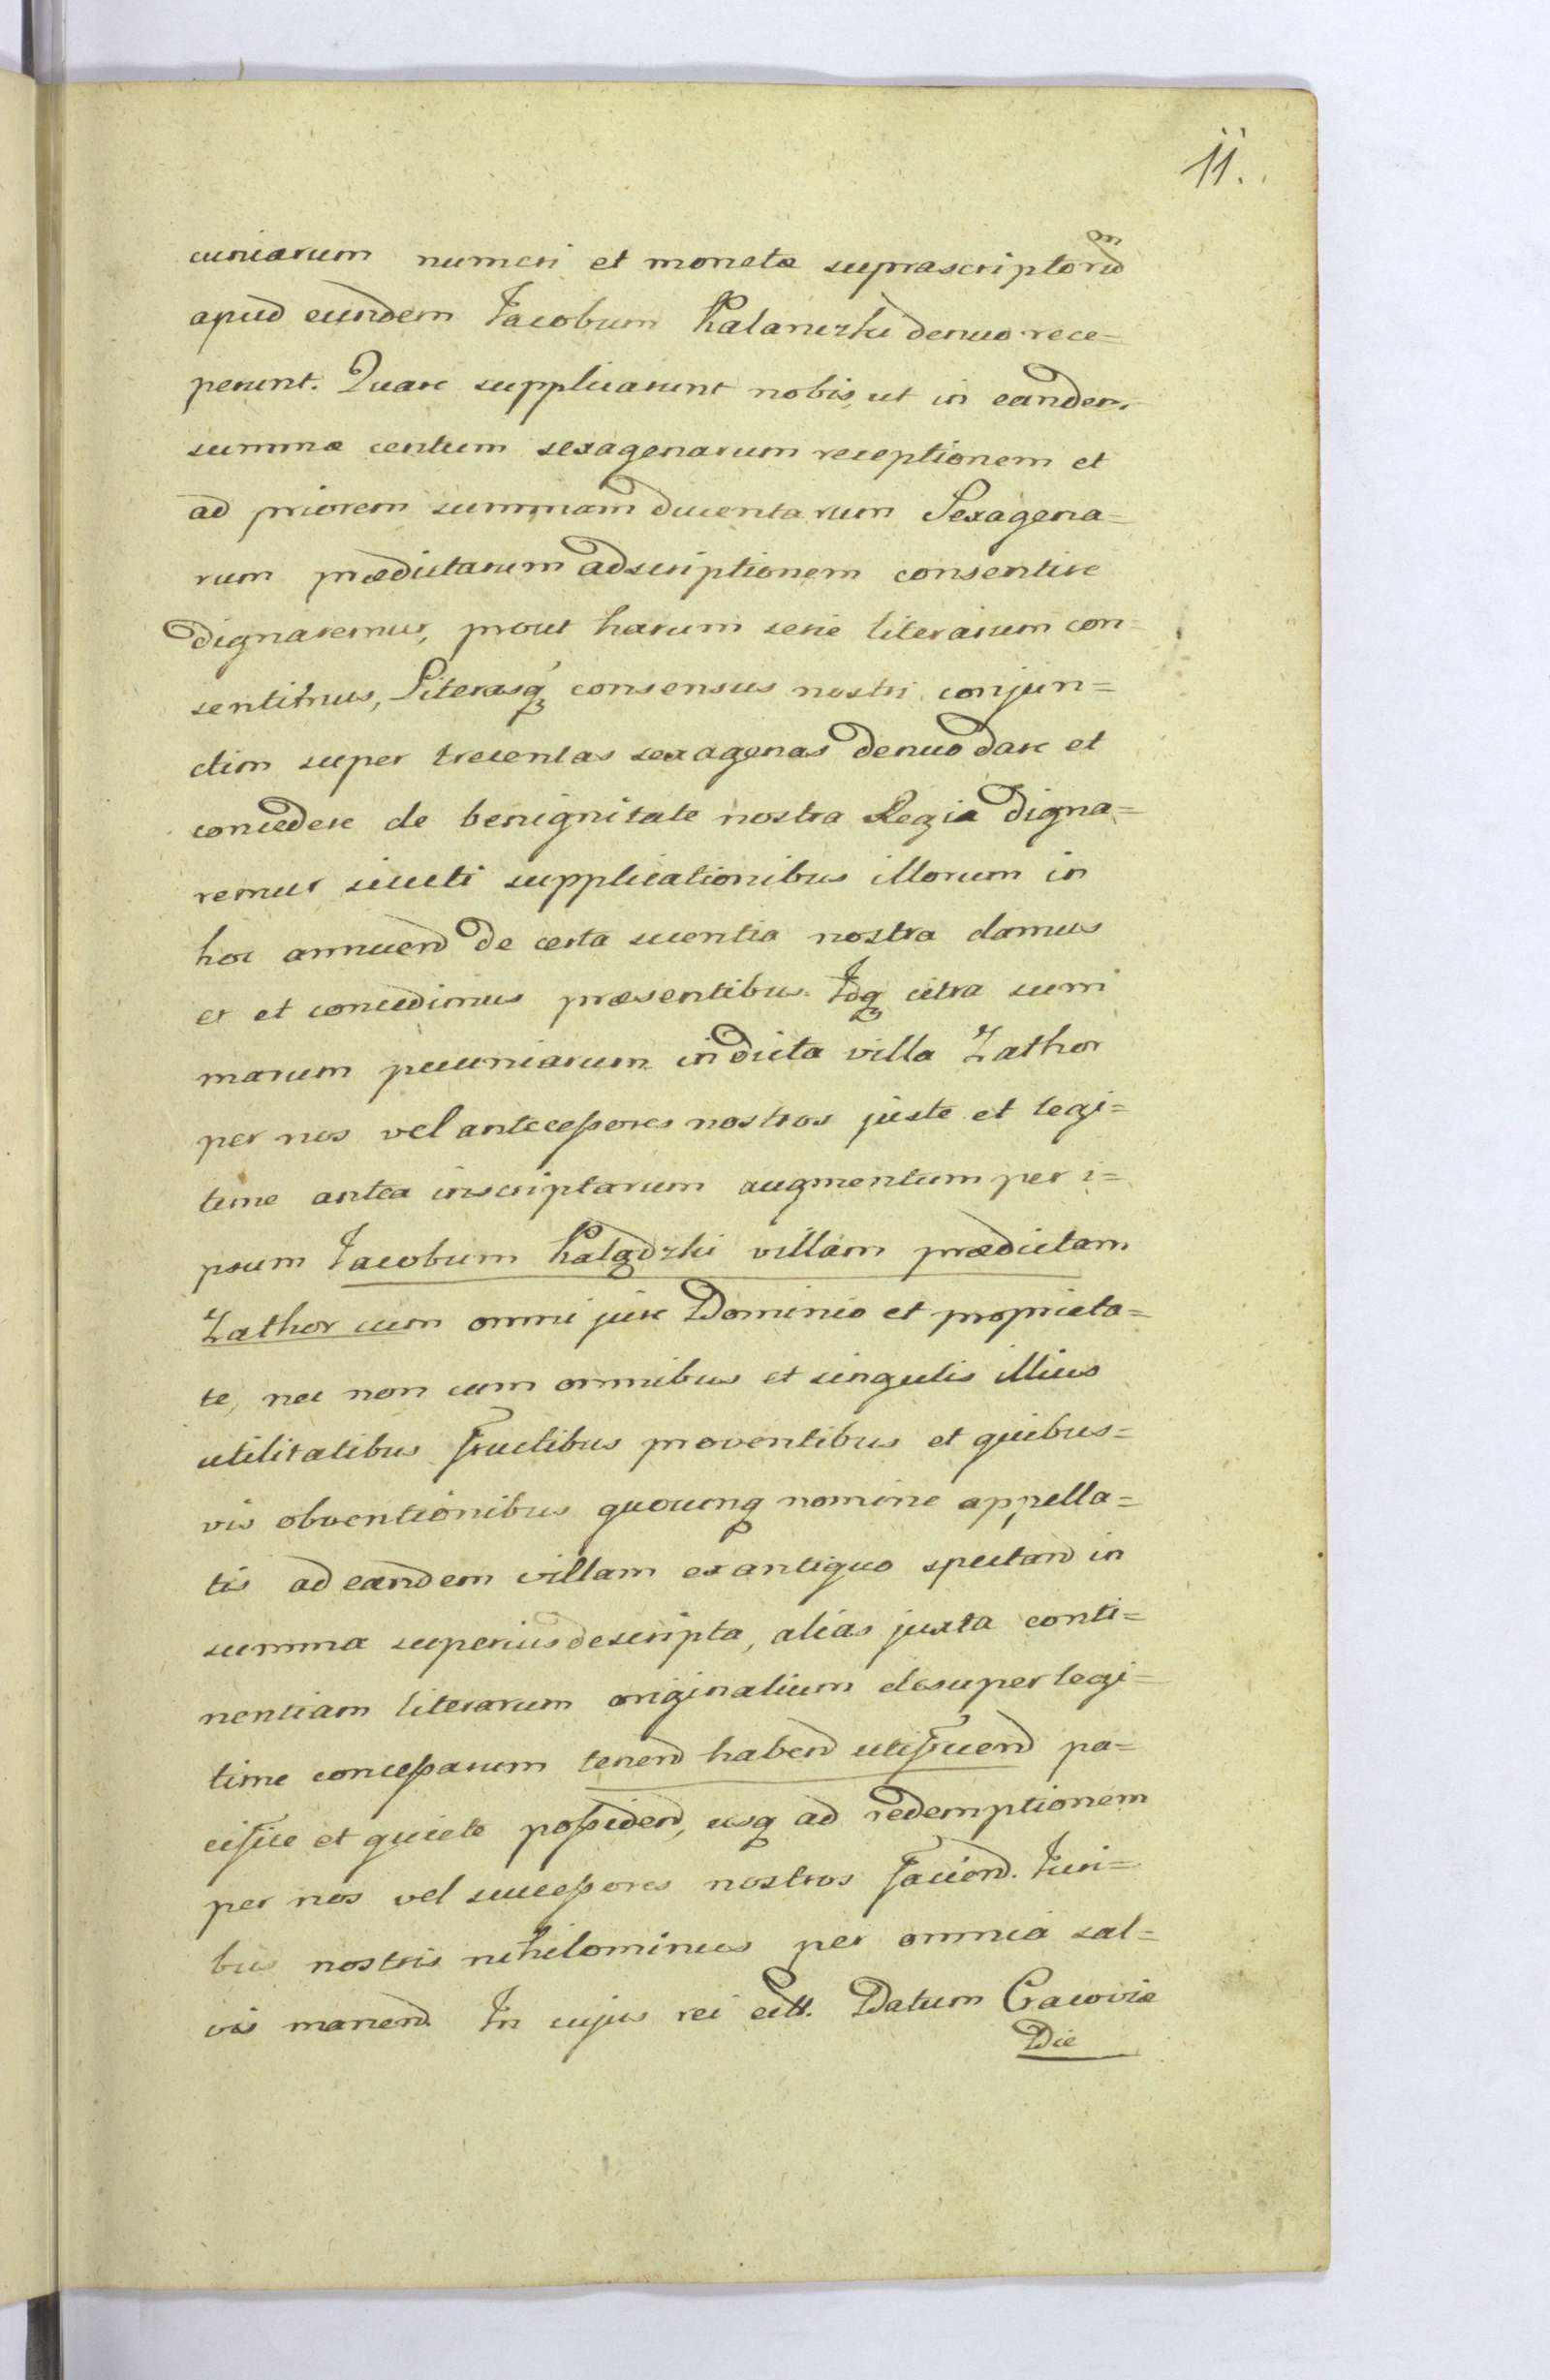 11.
cuniarum numeri et monetæ suprascriptorũm
apud eundem Jacobum Kalanczki denuo rece=
perunt. Quare supplicarunt nobis, ut in eandem
summæ centum sexagenarum receptionem et
ad priorem summam ducentarum Sexagena=
rum prædictarum adscriptionem consentire
dignaremur, prout harum serie literarum con=
sentimus, Literasq́ consensus nostri conjun=
ctim super trecentas sexagenas denuo dare et
concedere de benignitate nostra Regia digna=
remur sicuti supplicationibus illorum in
hoc annuend de certa scientia nostra damus
er et concedimus præsentibus. Idq citra sum
marum pecuniarum in dicta villa Zathor
per nos vel antecessores nostros juste et legi=
time antea inscriptarum augmentum per i=
psum Jacobum villam prædictam
Zathor cum omni jure Dominio et proprieta=
te, nec non cum omnibus et singulis illius
utilitatibus fructibus proventibus et quibus=
vis obventionibus quocunq nomine appella=
tis ad eandem villam ex antiquo spectand in
summa superius descripta, alias juxta conti=
nentiam literarum originalium desuper legi=
time concessarum tenend habend utifruend pa=
cifice et quiete possidend, usq ad redemptionem
per nos vel successores nostros faciend. Juri=
bus nostris nihilominus per omnia sal=
vis manend. In cujus rei ctt. Datum Cracoviæ
Die